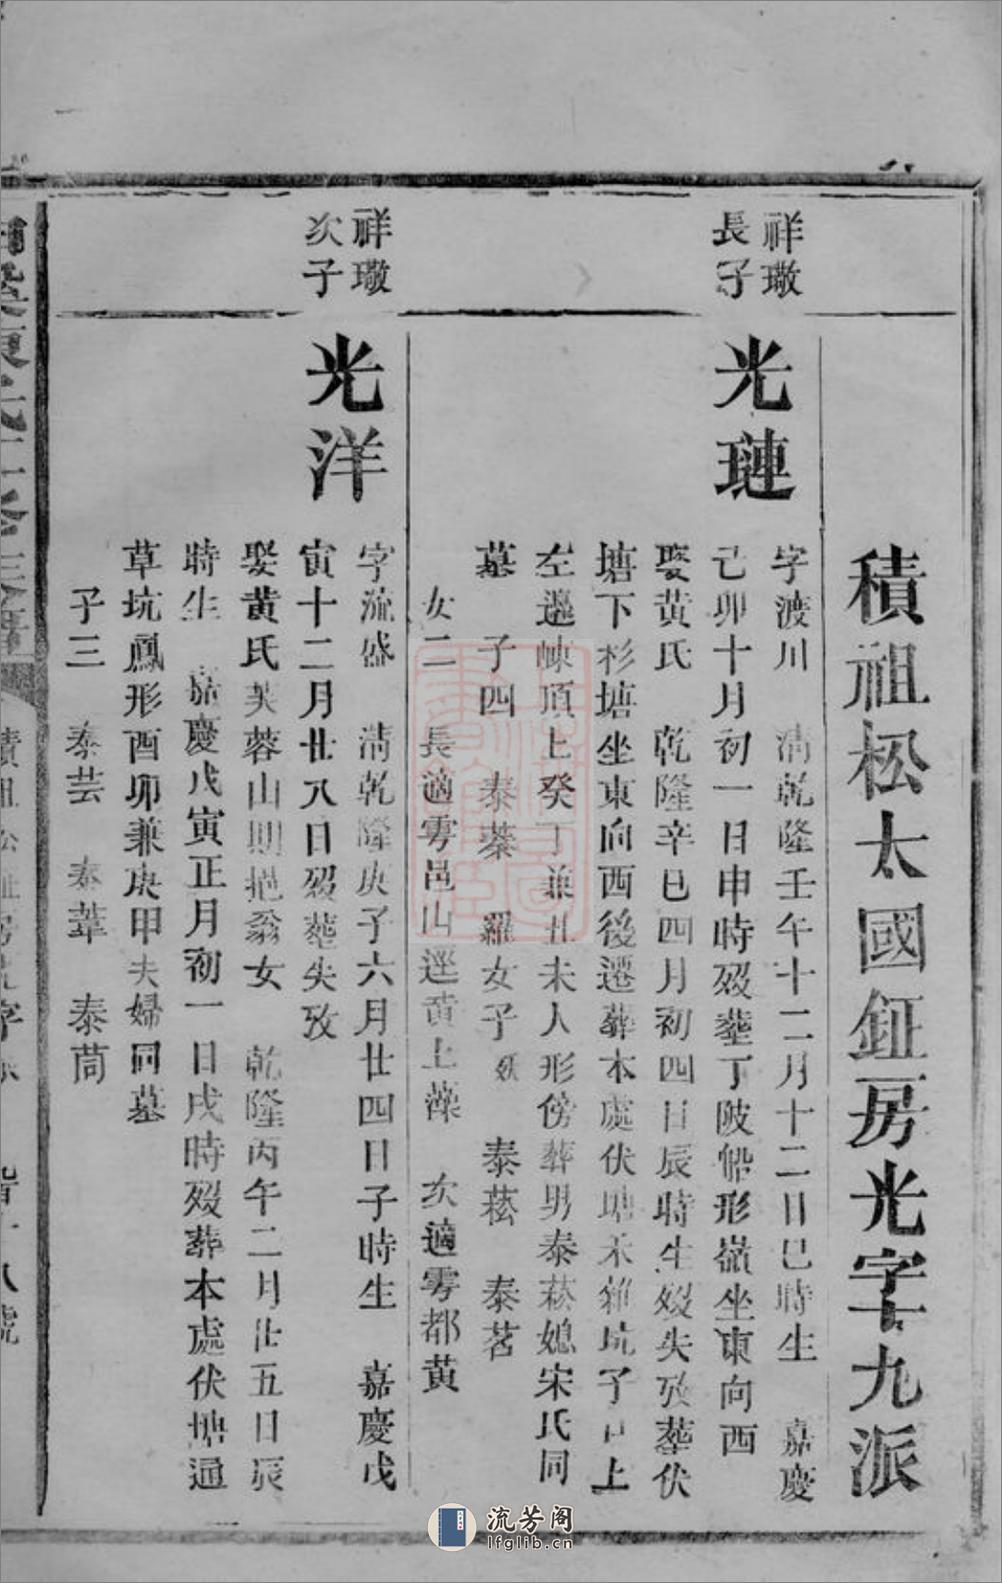 積祖松太國鉦房光字十九派
祥璥
長子
光璉
字渡川 清乾隆壬午十二月十二日巳時生 嘉慶
己卯十月初一日申時歿塟丁陂船形嶺坐東向西
娶黄氏 乾隆辛巳四月初四日辰時生歿失攷塟伏
塘下杉塘坐東向西後遷葬本處伏塘禾雜坑子山上
左邊崠頂上癸丁兼丑未人形傍葬男泰菘媳宋氏同
墓 子四 泰蓁 羅女子 妖 泰菘 泰茗
女二 長適雩邑山逕黄上藻 次適雩都黄
祥璥
次子
光洋
字流盛 清乾隆庚子六月廿四日子時生 嘉慶戊
寅十二月廿八日歿塟失攷
娶黄氏芙蓉山期挹翁女 乾隆丙午二月廿五日辰
時生 嘉慶戊寅正月初一日戌時歿葬本處伏塘通
草坑鳳形酉卯兼庚甲夫婦同墓
子三 泰芸 泰葦 泰茼
流芳阁
lfglib.cn